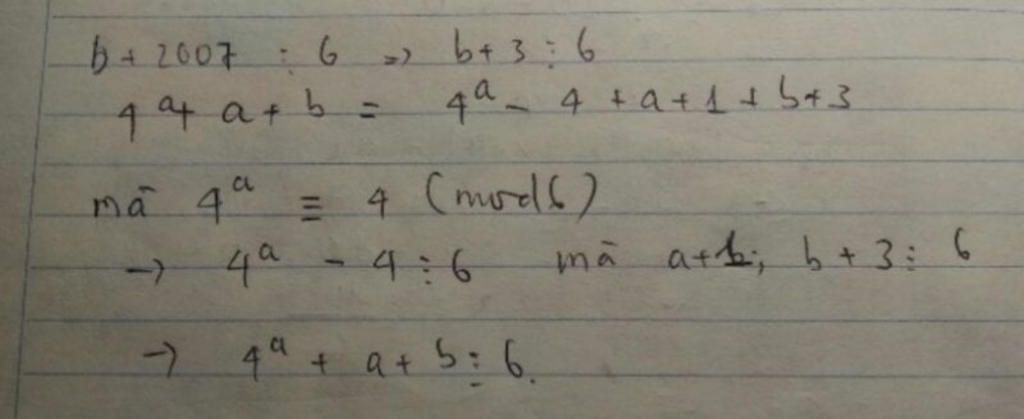 b + 2007 ⋮ 6 => b + 3 ⋮ 6
4^a + a + b = 4^a - 4 + a + 1 + b + 3
mà 4^a ≡ 4 (mod 6)
→ 4^a - 4 ⋮ 6 mà a + 1; b + 3 ⋮ 6
→ 4^a + a + b ⋮ 6.